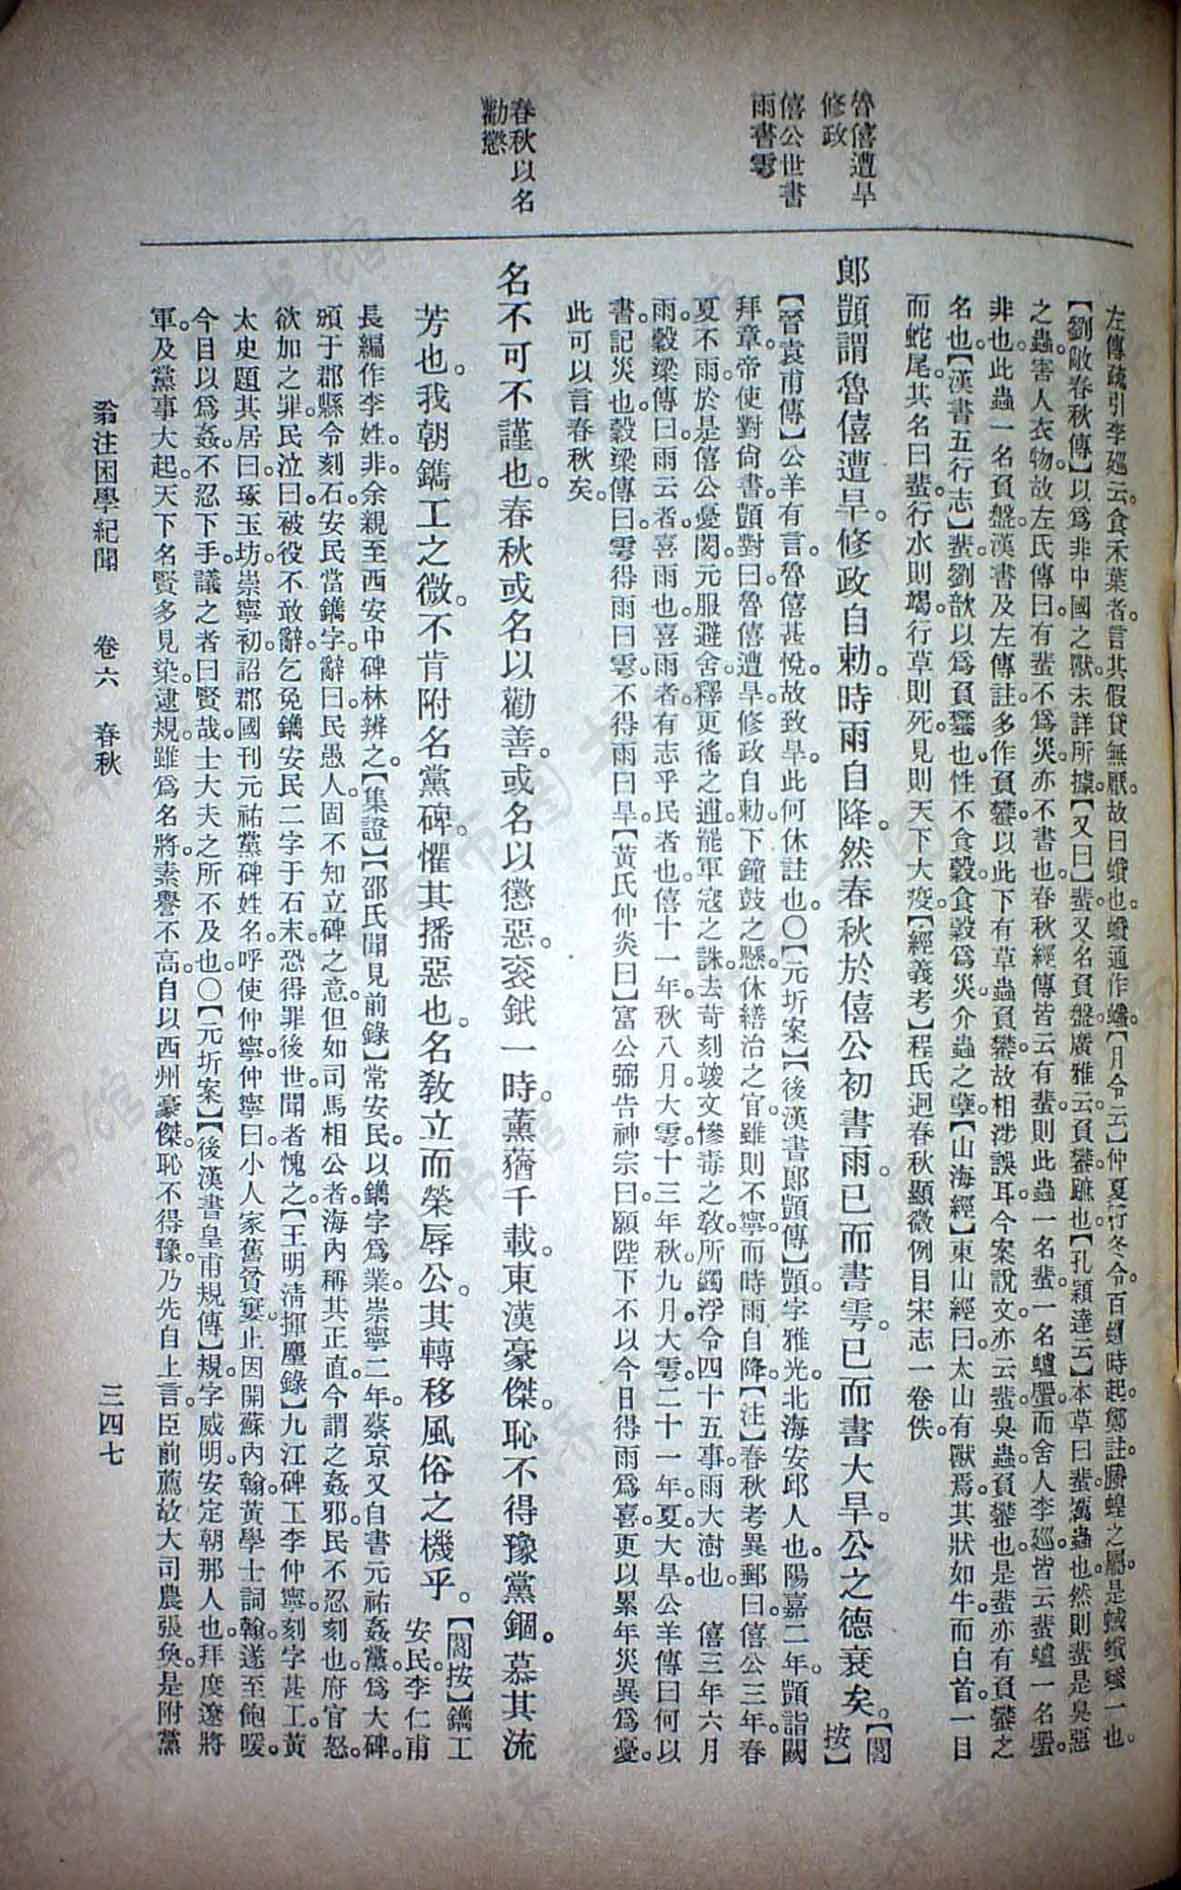 魯僖遭旱
修政
僖公世書
雨書雩
春秋以名
勸懲
左傳疏引李廵云。食禾葉者。言其假貸無厭。故曰蟘也。蟘通作蟘。【月令云】仲夏行冬令。百螣時起。鄭註。螣蝗之屬。是蜮蟘螣一也。
【劉敞春秋傳】以爲非中國之獸。未詳所據。【又曰】蜚又名負盤。廣雅云。負蠜蟅也。【孔穎達云】本草曰。蜚。蠣蟲也。然則蜚是臭惡
之蟲。害人衣物。故左氏傳曰。有蜚不爲災。亦不書也。春秋經傳皆云有蜚。則此蟲一名蜚。一名蠦蜰。而舍人李廵皆云蜚蠦一名蜰。
非也。此蟲一名負盤。漢書及左傳註。多作負蠜。以此下有草蟲負蠜。故相涉誤耳。今案說文亦云。蜚。臭蟲。負蠜也。是蜚亦有負蠜之
名也。【漢書五行志】蜚。劉歆以爲負蠜也。性不食穀。食穀爲災。介蟲之孽。【山海經】東山經曰。太山有獸焉。其狀如牛而白首。一目
而蛇尾。其名曰蜚。行水則竭。行草則死。見則天下大疫。【經義考】程氏迥春秋顯微例目宋志一卷佚。
郎顗謂魯僖遭旱。修政自勅。時雨自降。然春秋於僖公初書雨。已而書雩。已而書大旱。公之德衰矣。【閻
按】
【晉袁甫傳】公羊有言。魯僖甚悅。故致旱。此何休註也。○【元圻案】【後漢書郎顗傳】顗字雅光。北海安邱人也。陽嘉二年。顗詣闕
拜章。帝使對尙書。顗對曰。魯僖遭旱。修政自勅。下鐘鼓之懸。休繕治之官。雖則不寧。而時雨自降。【注】春秋考異郵曰。僖公三年。春
夏不雨。於是僖公憂閔。元服避舍。釋更徭之逋。罷軍寇之誅。去苛刻竣文慘毒之敎。所蠲浮令四十五事。雨大澍也。　僖三年六月
雨。穀梁傳曰。雨云者。喜雨也。喜雨者。有志乎民者也。僖十一年。秋八月。大雩。十三年。秋九月。大雩。二十一年。夏。大旱。公羊傳曰。何以
書。記災也。穀梁傳曰。雩得雨曰雩。不得雨曰旱。【黃氏仲炎曰】富公弼告神宗曰。願陛下不以今日得雨爲喜。更以累年災異爲憂。
此可以言春秋矣。
名不可不謹也。春秋或名以勸善。或名以懲惡。袞鉞一時。薰蕕千載。東漢豪傑。恥不得豫黨錮。慕其流
芳也。我朝鐫工之微。不肯附名黨碑。懼其播惡也。名敎立而榮辱公。其轉移風俗之機乎。【閻按】鐫工
安民。李仁甫
長編作李姓。非。余親至西安中碑林辨之。【集證】【邵氏聞見前錄】常安民。以鐫字爲業。崇寧二年。蔡京又自書元祐姦黨爲大碑。
頒于郡縣令刻石。安民當鐫字。辭曰。民愚人。固不知立碑之意。但如司馬相公者。海內稱其正直。今謂之姦邪。民不忍刻也。府官怒。
欲加之罪。民泣曰。被役不敢辭。乞免鐫安民二字于石末。恐得罪後世。聞者愧之。【王明淸揮麈錄】九江碑工李仲寧。刻字甚工。黃
太史題其居曰。琢玉坊。崇寧初。詔郡國刊元祐黨碑姓名。呼使仲寧。仲寧曰。小人家舊貧窶。止因開蘇內翰黃學士詞翰。遂至飽暖。
今目以爲姦。不忍下手。議之者曰。賢哉。士大夫之所不及也。○【元圻案】【後漢書皇甫規傳】規字威明。安定朝那人也。拜度遼將
軍。及黨事大起。天下名賢多見染逮。規雖爲名將。素譽不高。自以西州豪傑。恥不得豫。乃先自上言。臣前薦故大司農張奐。是附黨
翁注困學紀聞　卷六　春秋
三四七